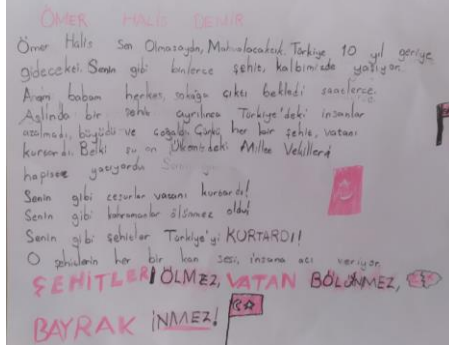 ÖMER HALİS DEMİR
Ömer Halis Sen Olmasaydın, Mahvolacaktık. Türkiye 10 yıl geriye
gidecekti. Senin gibi binlerce şehit, kalbimizde yaşıyor.
Anam babam herkes, sokağa çıktı bekledi saatlerce.
Aslında bir şehit ayrılınca Türkiye'deki insanlar
azalmadı, büyüdü ve çoğaldı Çünkü her bir şehit, vatanı
kurtardı. Belki şu an Ülkemizdeki Millet Vekilleri
hapiste yatıyordu
Senin gibi cesurlar vatanı kurtardı!
Senin gibi kahramanlar ölünmez oldu!
Senin gibi şehitler Türkiye'yi KURTARDI!
O şehitlerin her bir kan sesi, insana acı veriyor.
ŞEHİTLER ÖLMEZ, VATAN BÖLÜNMEZ,
BAYRAK İNMEZ!